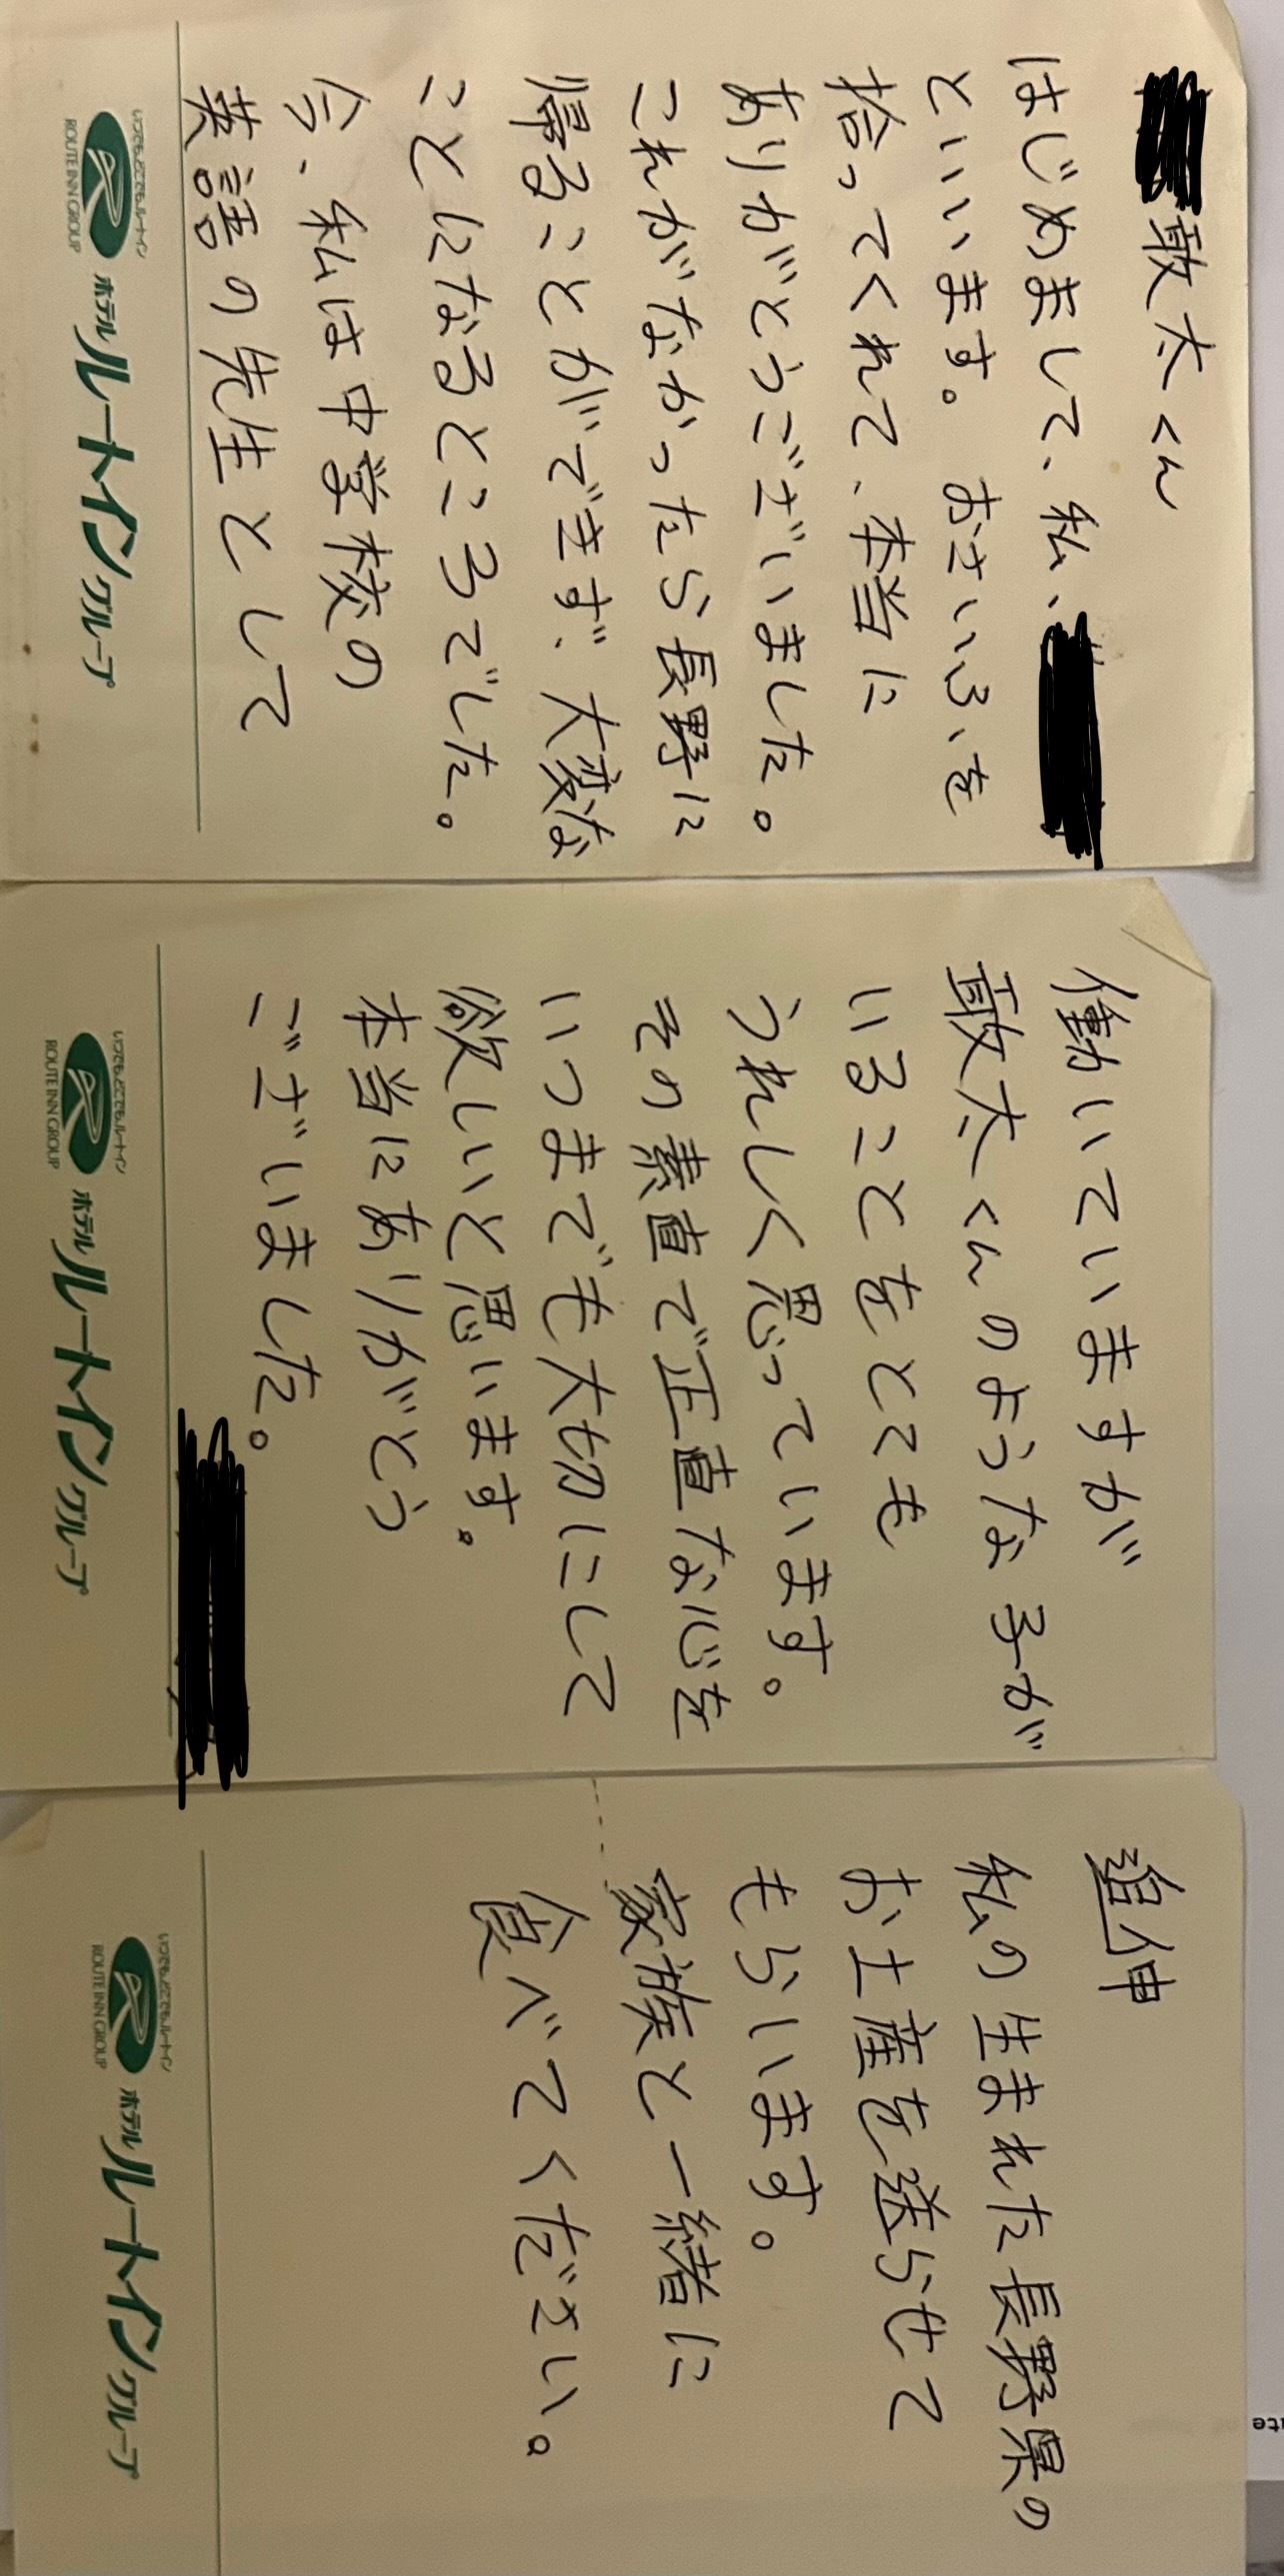 敢太くん
はじめまして、私、
といいます。おさいふを
拾ってくれて、本当に
ありがとうございました。
これがなかったら長野に
帰ることができず、大変な
ことになるところでした。
今、私は中学校の
英語の先生として
いつでもどこでもルートイン
ROUTE INN GROUP
ホテルルートイングループ
働いていますが
敢太くんのような子が
いることをとても
うれしく思っています。
その素直で正直な心を
いつまでも大切にして
欲しいと思います。
本当にありがとう
ございました。
いつでもどこでもルートイン
ROUTE INN GROUP
ホテルルートイングループ
追伸
私の生まれた長野県の
お土産を送らせて
もらいます。
家族と一緒に
食べてください。
いつでもどこでもルートイン
ROUTE INN GROUP
ホテルルートイングループ